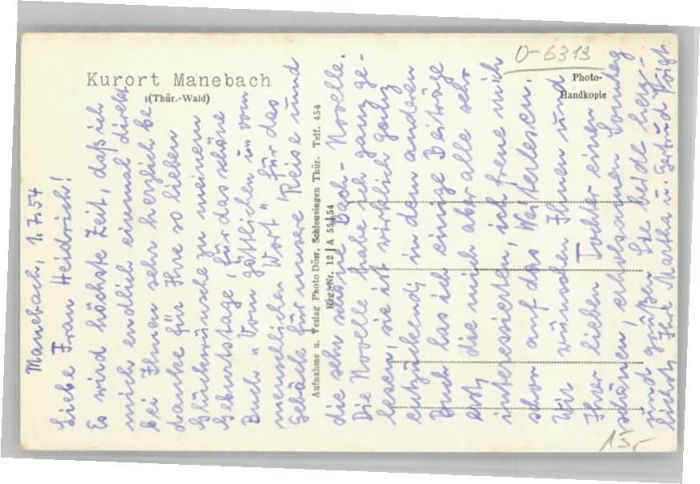 Kurort Manebach
(Thür.-Wald)
O-6313
Photo-
Handkopie
Manebach, 1.7.54
Liebe Frau Heidrich!
Es wird höchste Zeit, daß ich
mich endlich einmal direkt
bei Ihnen sehr herzlich be-
danke für Ihre so lieben
Glückwünsche zu meinem
Geburtstage, für das schöne
Buch „Vom göttlichen u. vom
menschlichen Wort" für das
Gebäck für unsere Reise und
die sehr schöne Bach-Novelle.
Die Novelle habe ich ganz ge-
lesen, sie ist wirklich ganz
entzückend; in dem anderen
Buch las ich einige Beiträge
erst, die mich aber alle sehr
interessierten, ich freue mich
schon auf das Weiterlesen.
Wir wünschen Ihnen und
Ihrer lieben Tochter einen
schönen, erholsamen Sonntag
und grüßen Sie beide herz-
lichst Ihre Martha u. Gertrud Voigt.
Aufnahme u. Verlag Photo Dörr, Schleusingen Thür. Telf. 454
Reg.-Nr. 12 | A 55 | 54
15,-